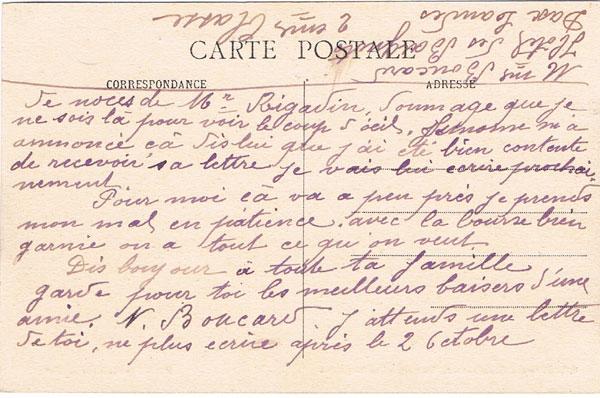 CARTE POSTALE
CORRESPONDANCE
ADRESSE
Mme Boucard
Hotel des
Dax Landes
2 eme Classe
de noces de Mr Rigadin, doumage que je
ne sois là pour voir le coup d'oeil, m'a
annoncé cà dis lui que j'ai été bien contente
de recevoir sa lettre je vais lui ecrire prochai-
nement
Pour moi cà va a peu près je prends
mon mal en patience, avec la bourse bien
garnie on a tout ce qu'on veut
Dis bonjour à toute ta famille
garde pour toi les meilleurs baisers d'une
amie. N. Boucard J'attends une lettre
de toi, ne plus ecrire après le 2 Octobre